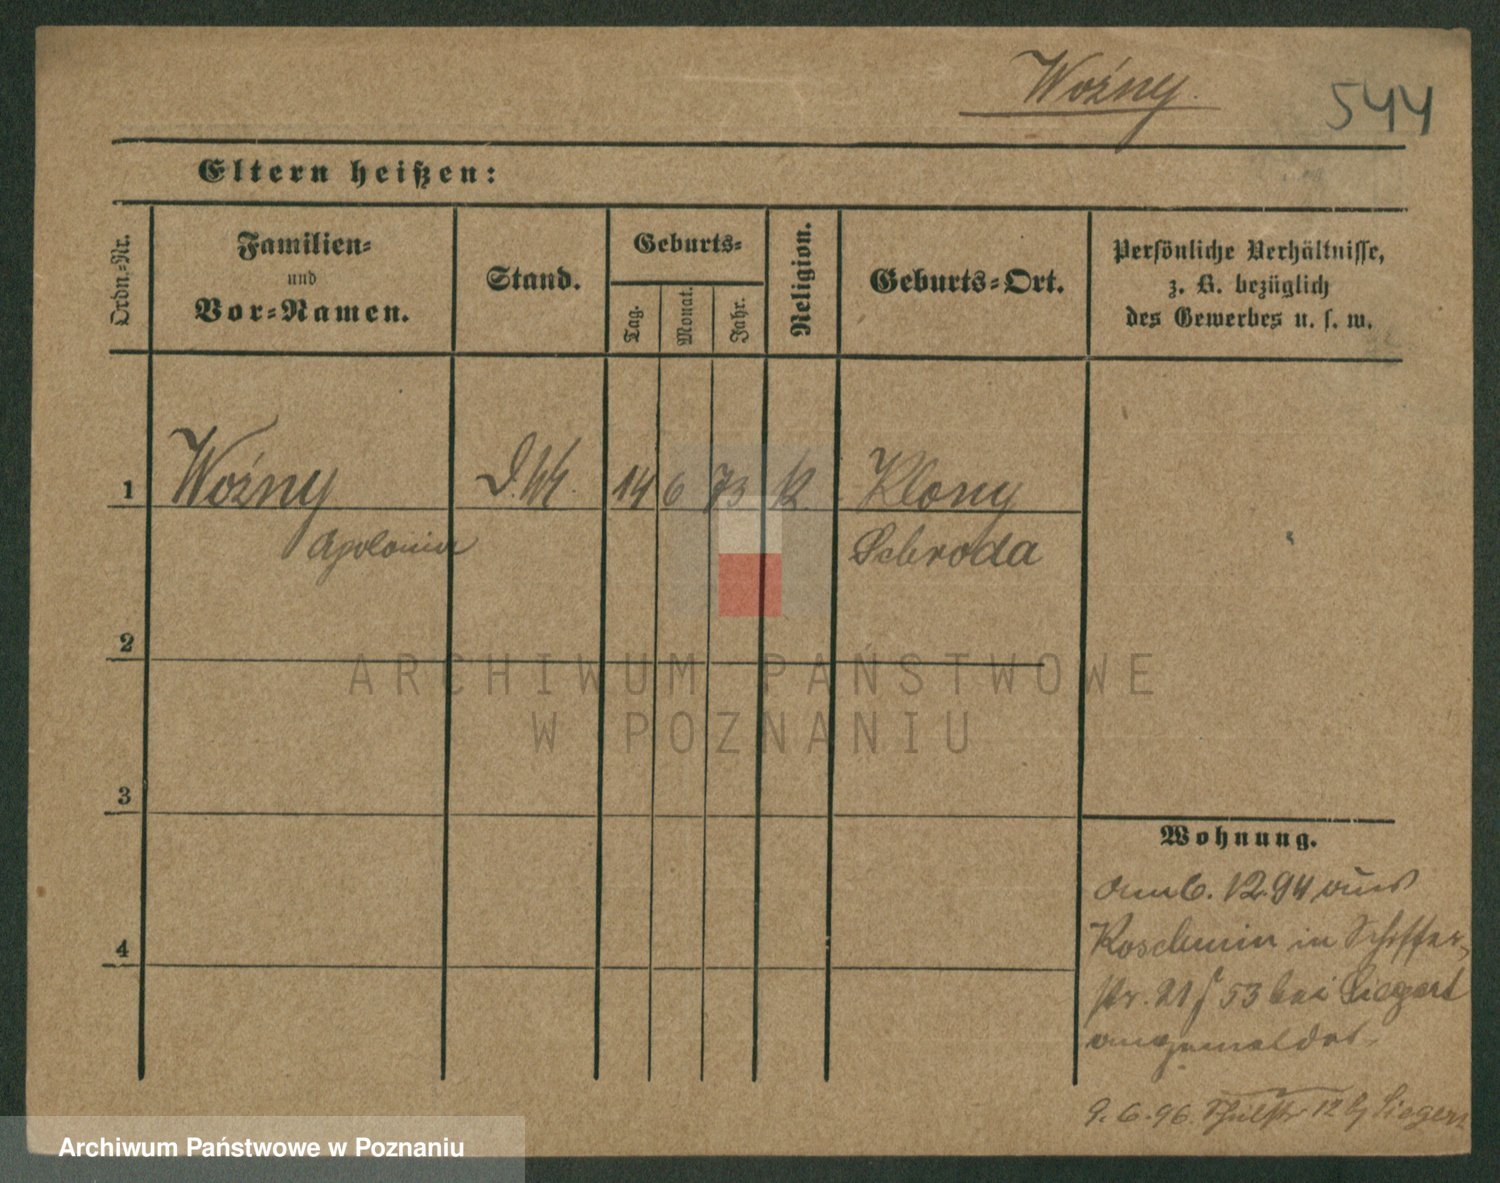 Woźny.
544
Eltern heißen:
Ordn.-Nr.
Familien-
und
Vor-Namen.
Stand.
Geburts-
Tag.
Monat.
Jahr.
Religion.
Geburts-Ort.
Persönliche Verhältnisse,
z. B. bezüglich
des Gewerbes u. s. w.
1 Woźny 14 6 73 k. Klony
Apolonia Schroda
2
3
4
Wohnung.
Am 6.12.94 aus
Koschmin in Schiffer-
str. 21 53 bei Siegert
angemeldet.
9.6.96. 12 b/ Siegert
ARCHIWUM PAŃSTWOWE
W POZNANIU
Archiwum Państwowe w Poznaniu